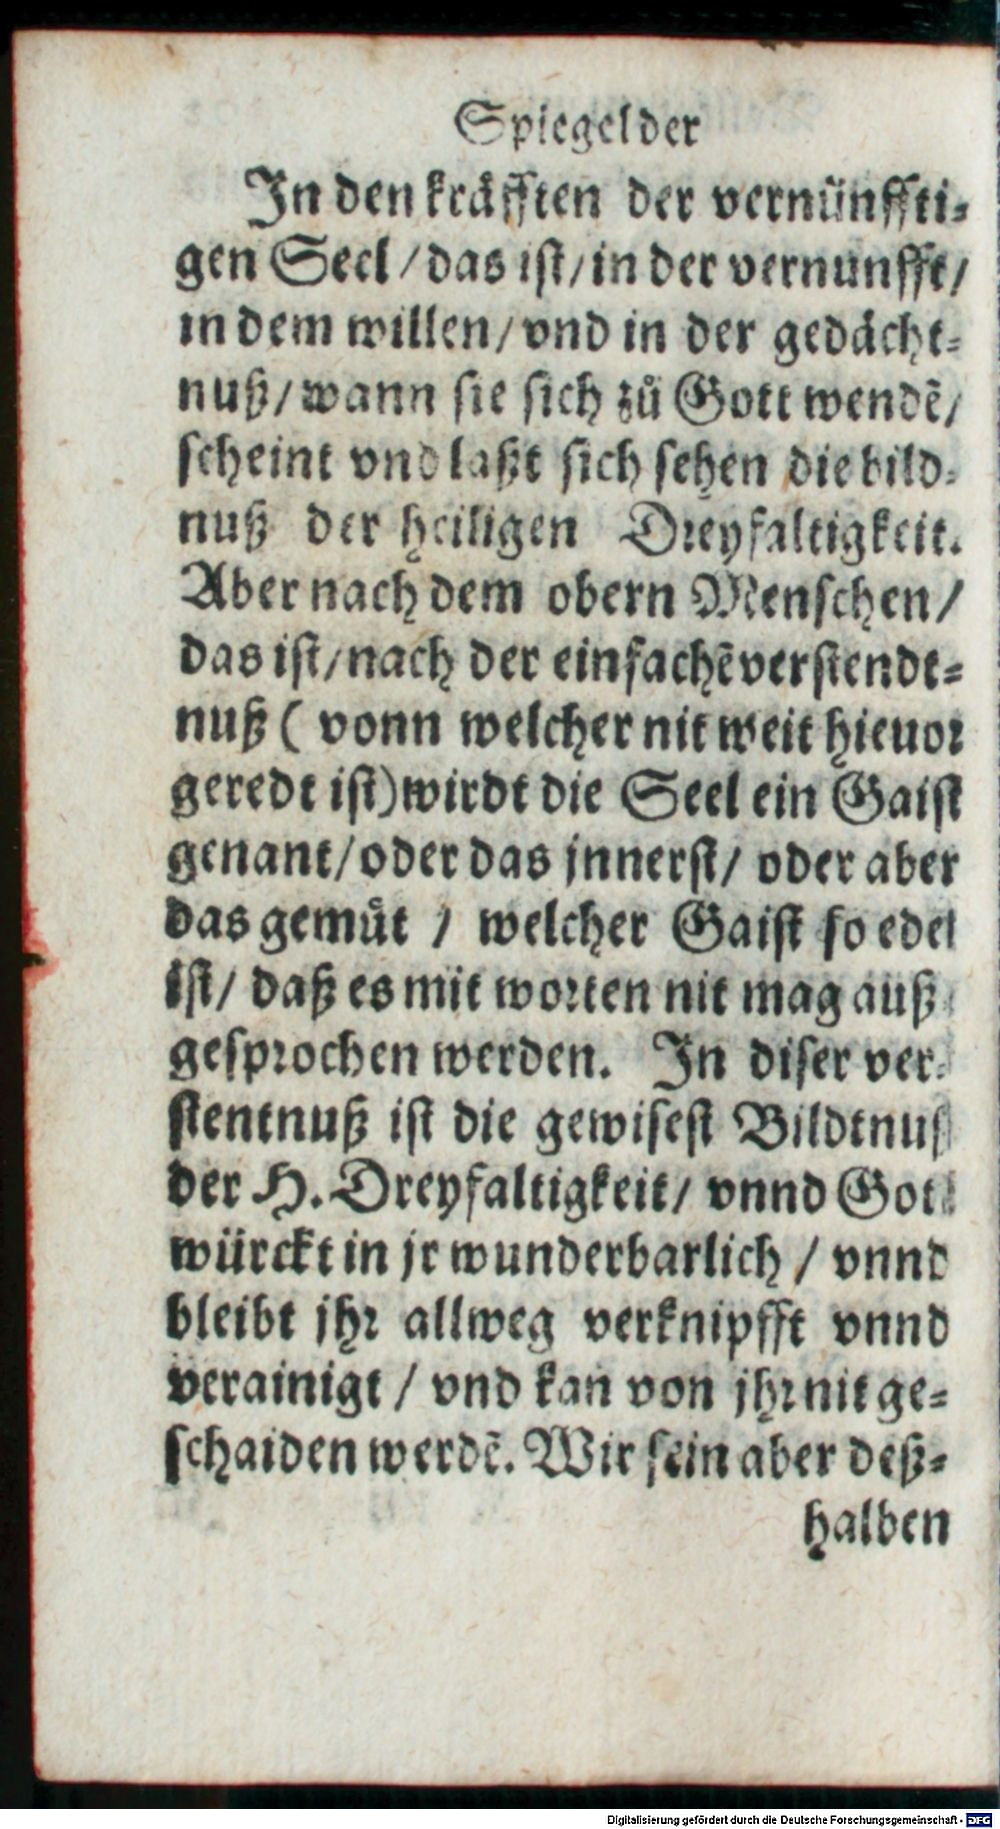 Spiegel der
In den kräfften der vernünffti-
gen Seel / das ist / in der vernunfft /
in dem willen / vnd in der gedächt-
nuß / wann sie sich zů Gott wendẽ /
scheint vnd laßt sich sehen die bild-
nuß der heiligen Dreyfaltigkeit.
Aber nach dem obern Menschen /
das ist / nach der einfachẽ verstendt-
nuß ( vonn welcher nit weit hieuor
geredt ist) wirdt die Seel ein Gaist
genant / oder das jnnerst / oder aber
das gemůt / welcher Gaist so edel
ist / daß es mit worten nit mag auß
gesprochen werden. In diser ver-
stentnuß ist die gewisest Bildtnuß
der H. Dreyfaltigkeit / vnnd Gott
würckt in jr wunderbarlich / vnnd
bleibt jhr allweg verknipfft vnnd
verainigt / vnd kan von jhr nit ge-
schaiden werdẽ. Wir sein aber deß-
halben
Digitalisierung gefördert durch die Deutsche Forschungsgemeinschaft - DFG